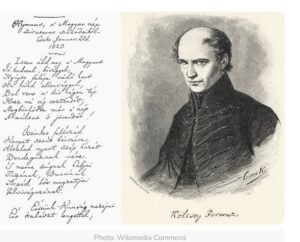 Hymnus, a' Magyar nép
zivataros századaiból.
Cseke Januar. 22d.
1823
Isten áldd meg a' Magyart
Jó kedvvel, bőséggel,
Nyújts feléje védő kart
Ha küzd ellenséggel;
Bal sors a' kit régen tép
Hozz rá víg esztendőt,
Megbűnhődte már e' nép
A' multat 's jövendőt!
Őseinket felhozád
Kárpát szent bérczére,
Általad nyert szép hazát
Bendegúznak vére.
'S merre zúgnak habjai
Tiszának, Dunának,
Árpád hős magzatjai
Felvirágozának.
Értünk Kunság mezején
Ért kalászt lengettél,
Kölcsey Ferencz
Photo: Wikimedia Commons